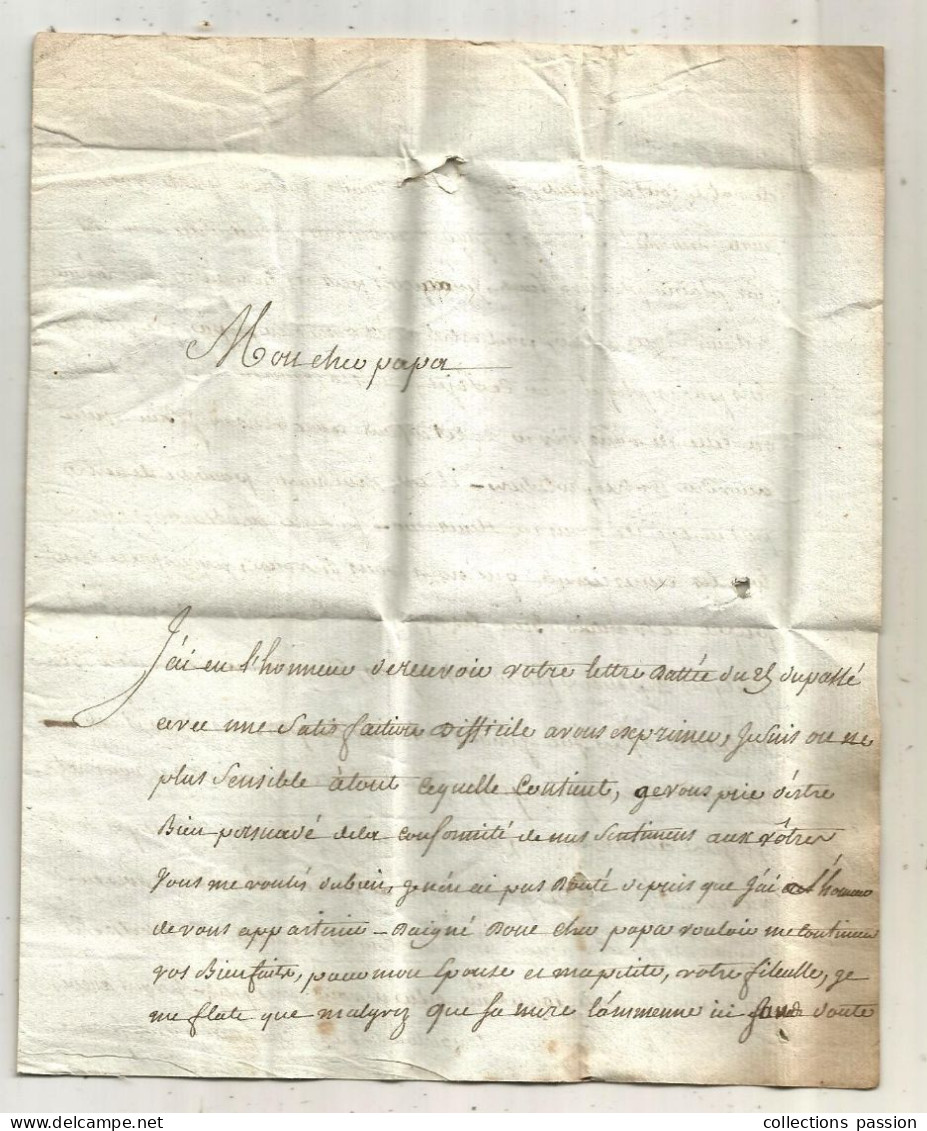 Mon cher papa
J'ai eu l'honneur de recevoir votre lettre Dattée du 25 du passé
avec une Satisfaction Difficile a vous exprimer, Je suis on ne
plus Sensible à tout ce quelle Contient, ge vous prie d'éstre
Bien persuadé de la conformité de mes Sentimens aux vôtres
Vous me voulés du bien, ge n'en ai pas Douté depuis que J'ai l'honneur
de vous appartenir - Daigné Donc cher papa vouloir me Continuer
vos Bienfaits, pour mon Epouse et ma petite, votre fileulle, ge
me flate que malgrez que sa mere l'ammenne ici sans doute
collections passion